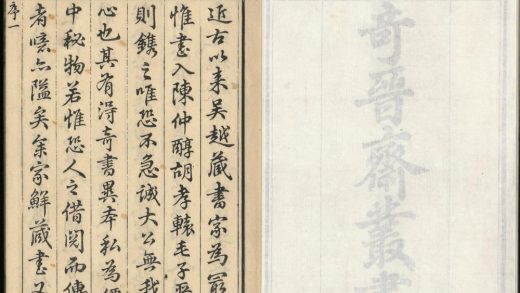 奇晉齋叢書
近古以来吴越藏書家為冣
惟書入陳仲醇胡孝轅毛子
則鐫之唯恐不急誠大公無我
心也其有得奇書異本私為
中秘物若惟恐人之借閱而傳
者噫亦隘矣余家鮮藏書又
序一